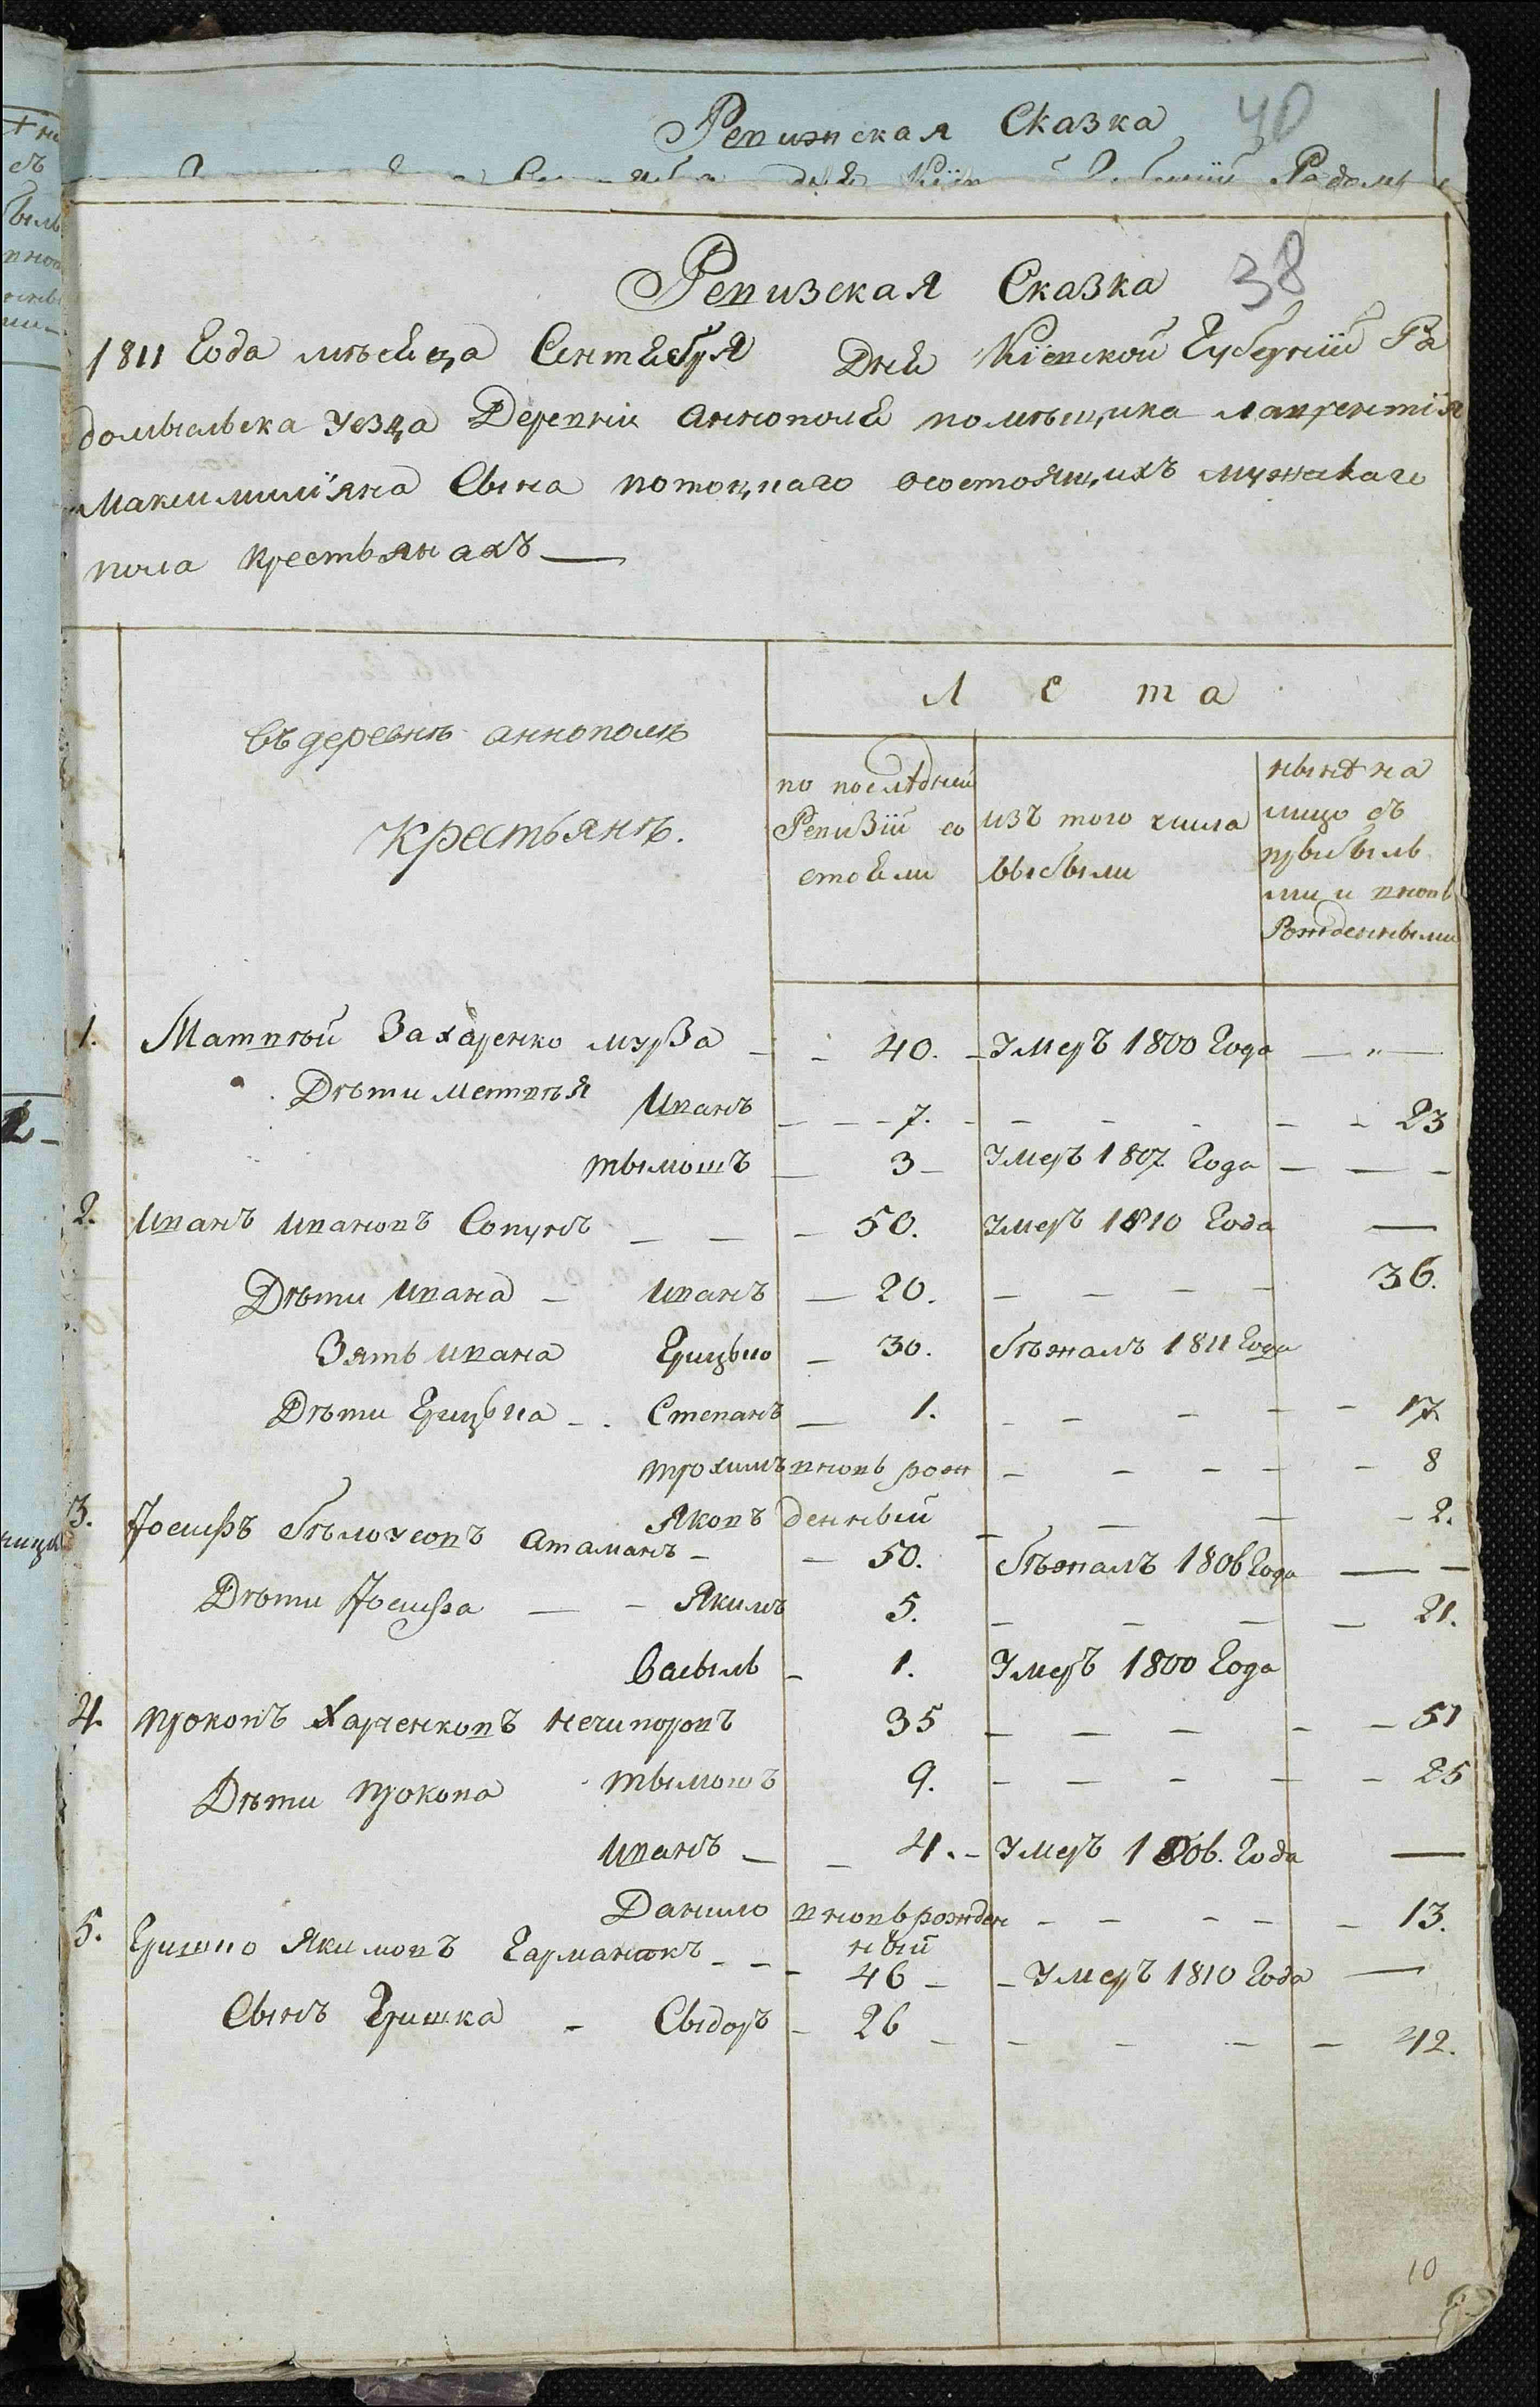 Ревизская Сказка 40
Радомы
Ревизская Сказка 38
1811 Года мѣсяца Сентября Дня Кіевской Губерніи Ра
домысльска Уезда Деревни Аннополя помѣщика Лаврентія
Максимиліяна Сына Потоцкаго осостоящихъ мужскаго
пола крестьянахъ —
Лета
въ деревнѣ аннополѣ
крестьянъ.
по последней
Ревизіи со
стояли
изъ того числа
выбыли
нынѣ на
лицо съ
прибыль
ми и вновь
Рожденными
1. Матвѣй Захаренко мурза – – 40. – Умеръ 1800 Года — " —
Дѣти Метвѣя Иванъ – – – 7. – – – – – – 23
тымошъ — 3 – Умеръ 1807 Года – — –
2. Иванъ Ивановъ Сопунъ – – – 50. Умеръ 1810 Года —
Дѣти Ивана – Иванъ — 20. – – – – 36.
Зять Ивана Грицько – 30. бѣжалъ 1811 Года
Дѣти Грицька – . Степанъ — 1. – – – – – 17
трохимъ вновь рож – – – – – 8
Яковъ денный – – – – 2.
3. Іосифъ бѣлоусовъ Атаманъ – – 50. бѣжалъ 1806 Года — –
Дѣти Іосифа — – Якимъ 5. – – – – 21.
Васыль – 1. Умеръ 1800 Года
4. Прокопъ Харченковъ Нечипоровъ 35 – – – – – 51
Дѣти Прокопа тымошъ 9. – – – – – 25
Иванъ – – 4. – Умеръ 1806. Года —
Данило вновь рожден – – – – – 13.
ный
5. Гришко Якимовъ Гарманюкъ – – – 46 – – Умеръ 1810 Года —
Сынъ Гришка – Сыдоръ – 26 – – – – – 42.
10